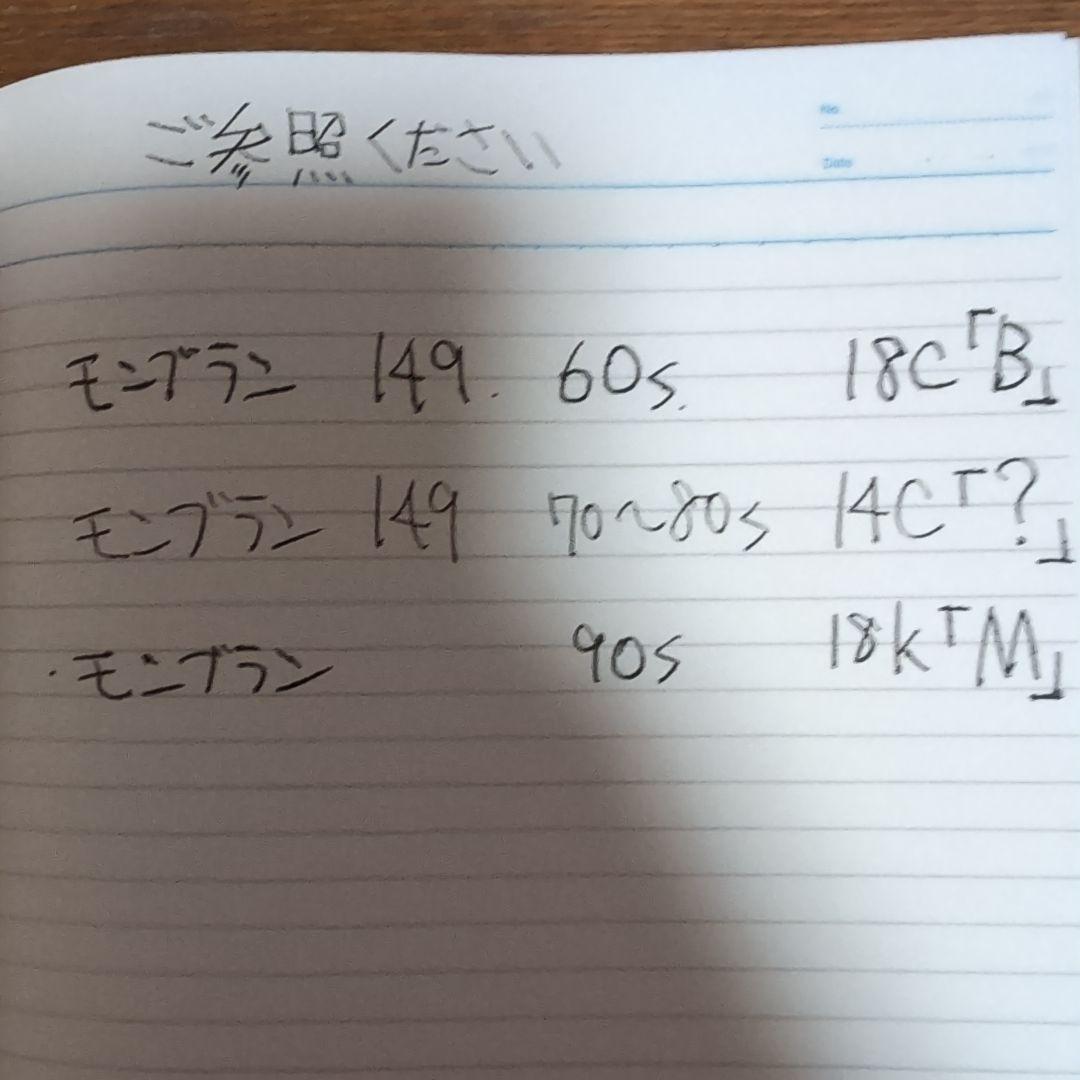 ご参照ください
No.
Date
モンブラン 149. 60s. 18C「B」
モンブラン 149 70~80s 14C「?」
・モンブラン 90s 18k「M」